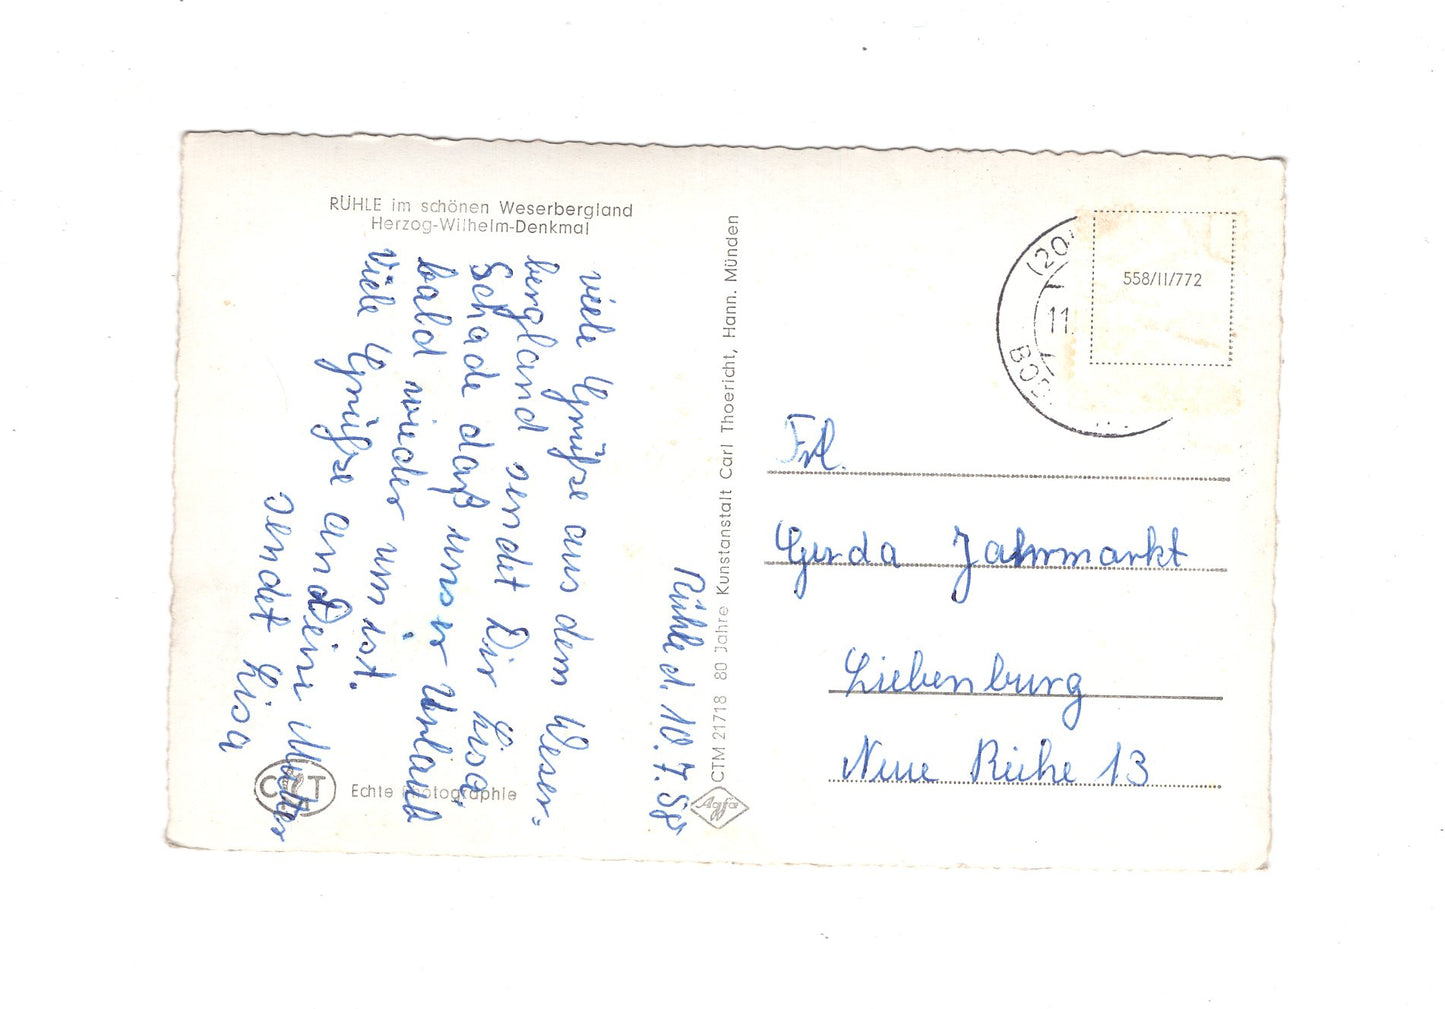 RÜHLE im schönen Weserbergland
Herzog-Wilhelm-Denkmal
Rühle d. 10.7.58
viele Grüße aus dem Weser-
bergland sendet Dir Lisa,
Schade daß unser Urlaub
bald wieder um ist.
Viele Grüße an Deine Mutter
sendet Lisa
C T
Echte Photographie
CTM 21718 80 Jahre Kunstanstalt Carl Thoericht, Hann. Münden
Agfa
(20
11.
558/II/772
Frl.
Gerda Jahrmarkt
Liebenburg
Neue Reihe 13